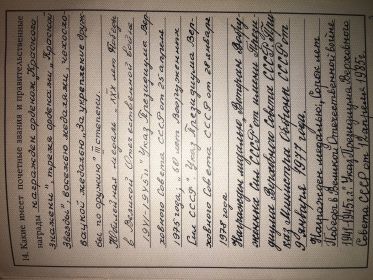 14. Какие имеет почетные звания и правительственные
награды награжден орденом „Красного
знамени", тремя орденами „Красной
Звезды", восемью медалями, чехосло-
вацкой медалью „За укрепление друж-
бы по оружию" степени.
Юбилейная медаль „XXX лет Победы
в Великой Отечественной войне
1941-1945 гг" Указ Президиума Вер-
ховного Совета СССР от 25 апреля
1975 года; „50 лет Вооруженных
Сил СССР", Указ Президиума Вер-
ховного Совета СССР от 28 января
1978 года
Награжден медалью „Ветеран Воору-
женных Сил СССР" от имени Прези-
диума Верховного Совета СССР. При-
каз Министра Обороны СССР от
января 1977 года.
Награжден медалью „Сорок лет
Победы в Великой Отечественной войне
1941-1945 г.г." Указ Президиума Верховного
Совета СССР от 12 апреля 1985 г.